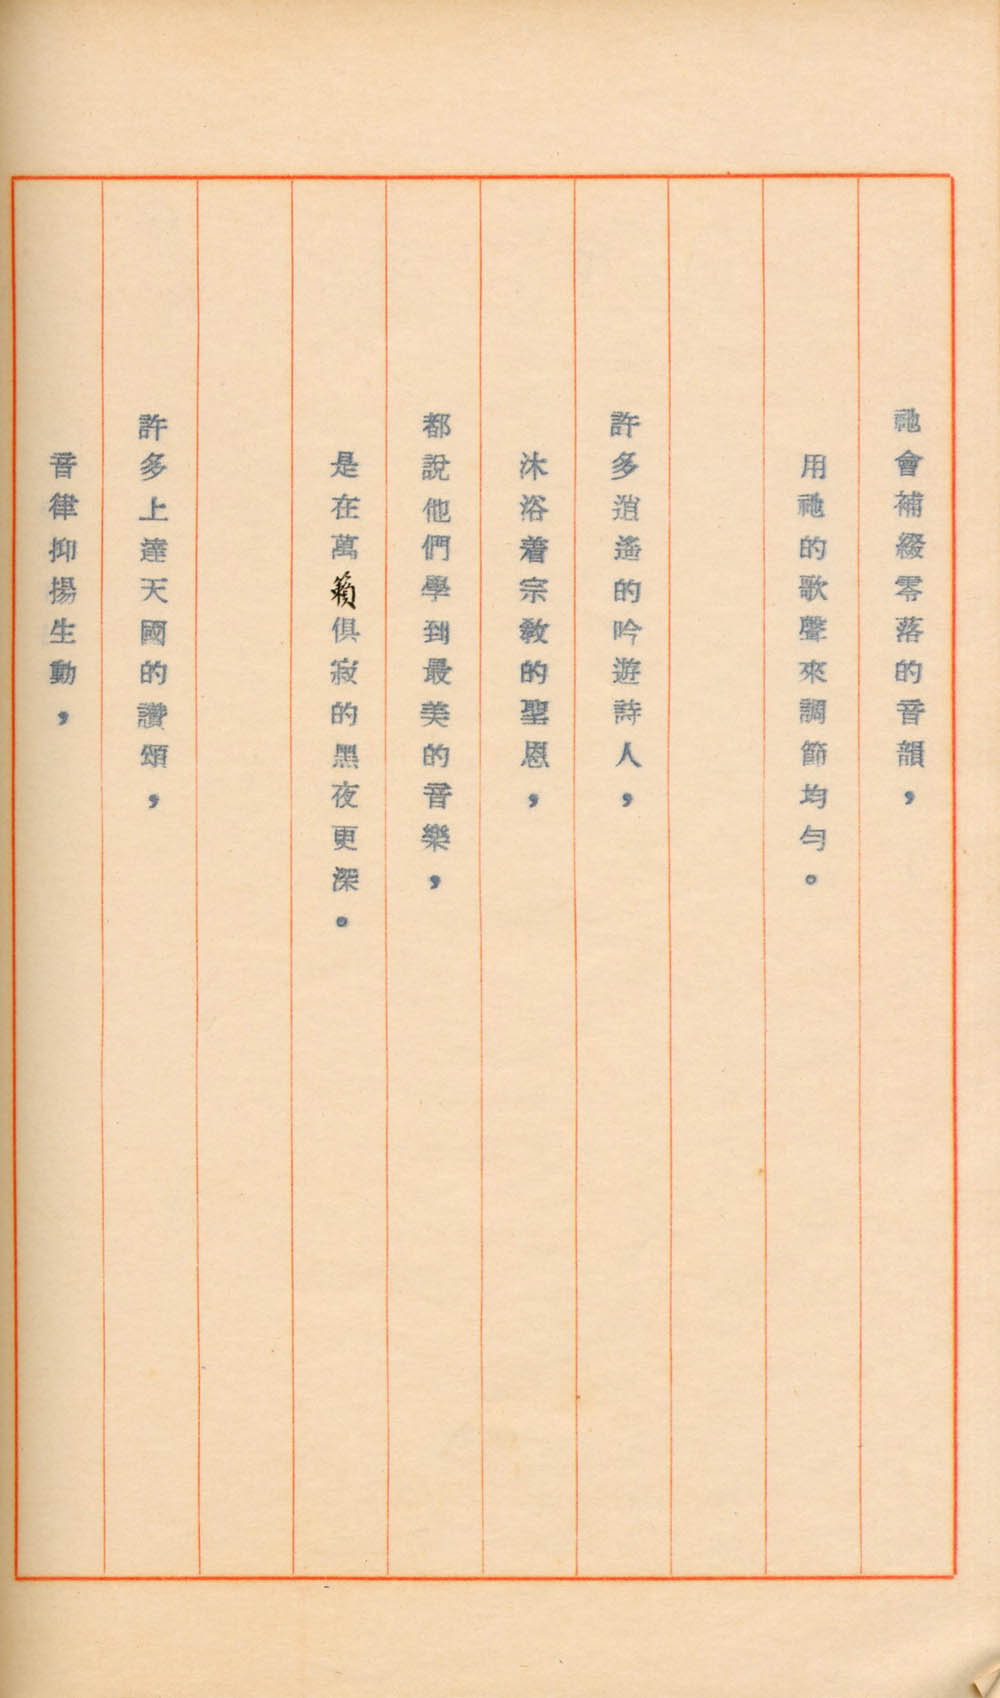 祂會補綴零落的音韻，
用祂的歌聲來調節均勻。
許多逍遙的吟遊詩人，
沐浴着宗教的聖恩，
都說他們學到最美的音樂，
是在萬籟俱寂的黑夜更深。
許多上達天國的讚頌，
音律抑揚生動，